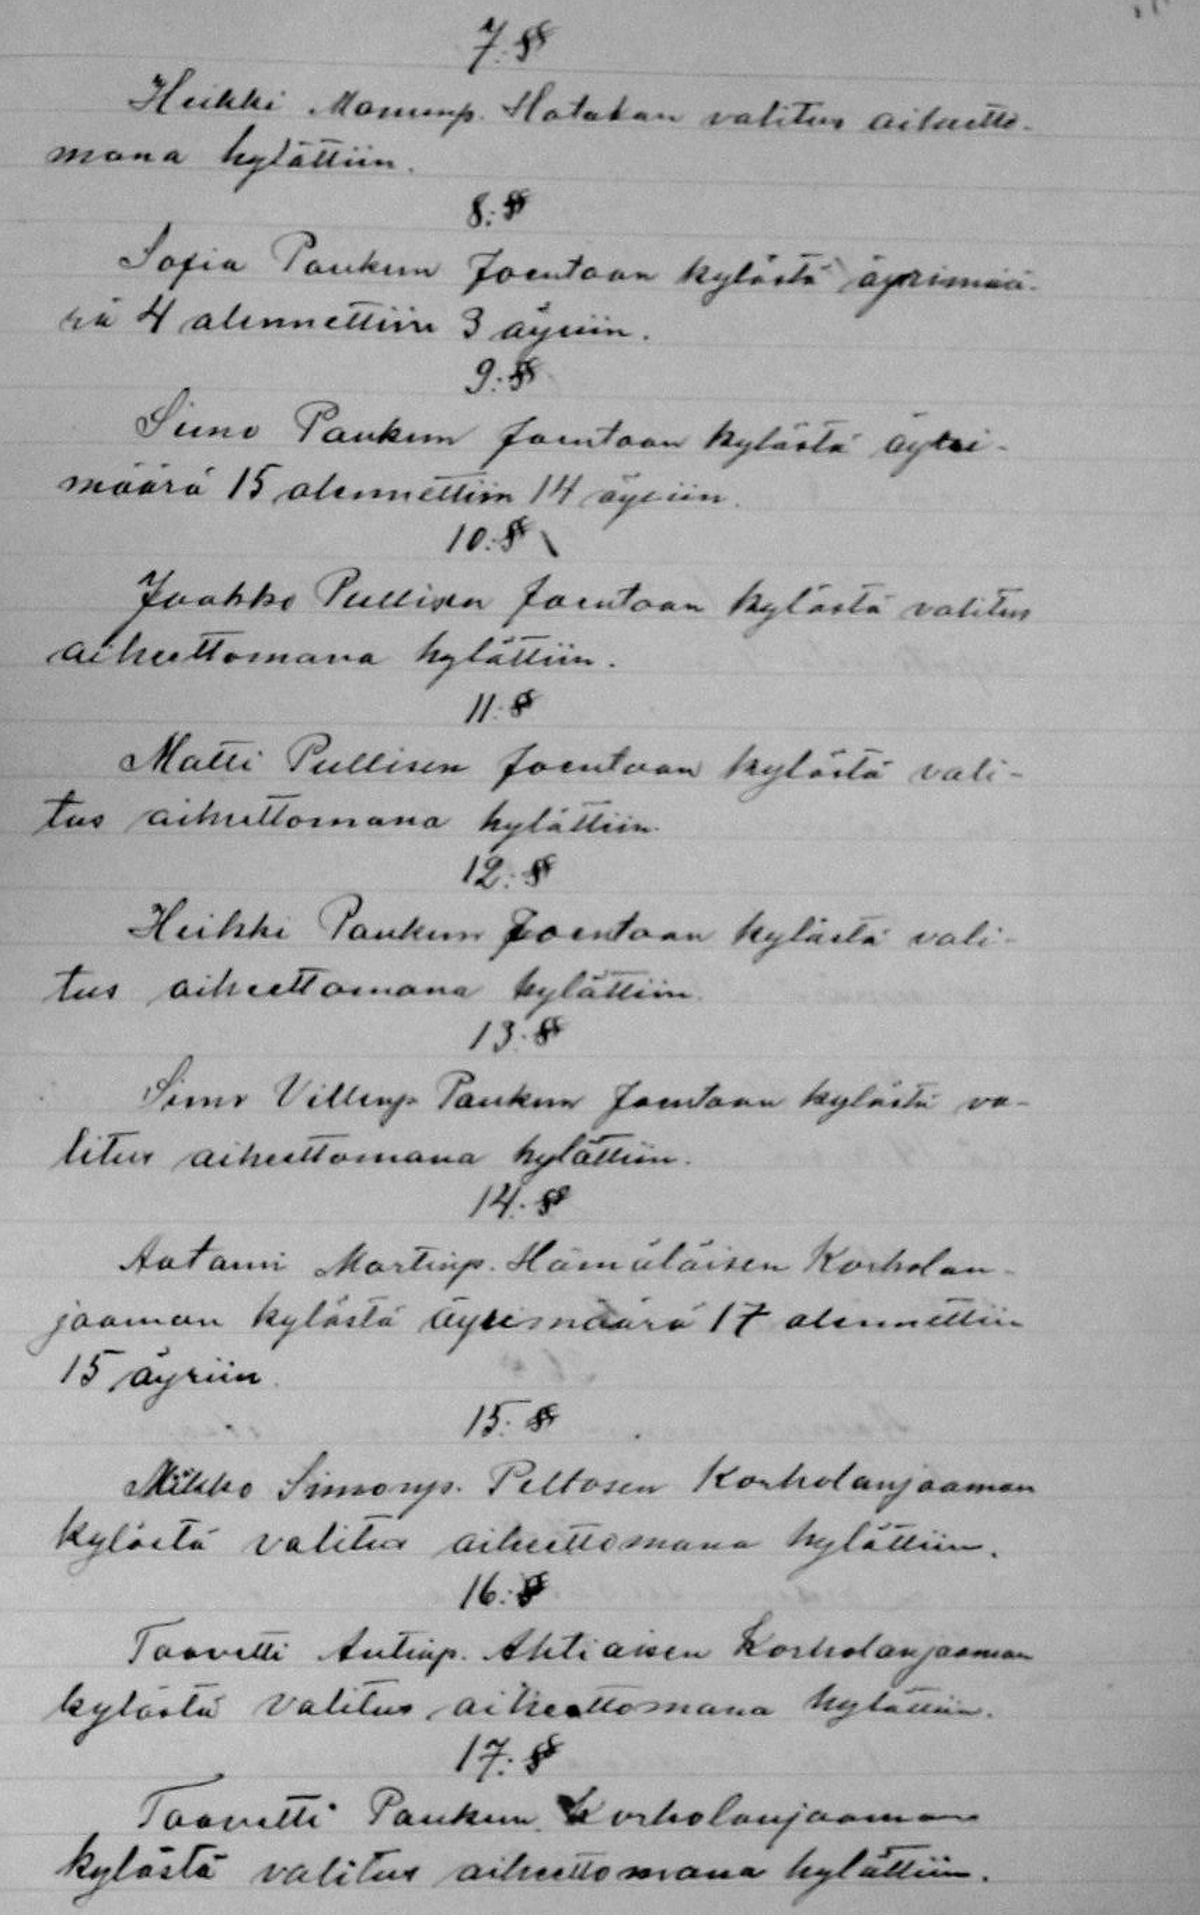 7. §§
Heikki Maminp. Hatakan valitus aiheetto-
mana hylättiin.
8. §
Sofia Paukun Joentaan kylästä äyrimää-
rä 4 alennettiin 3 äyriin.
9. §
Simo Paukun Joentaan kylästä äyri-
määrä 15 alennettiin 14 äyriin.
10. §
Jaakko Pullisen Joentaan kylästä valitus
aiheettomana hylättiin.
11. §
Matti Pullisen Joentaan kylästä vali-
tus aiheettomana hylättiin.
12. §
Heikki Paukun Joentaan kylästä vali-
tus aiheettomana hylättiin.
13. §
Simo Villenp. Paukun Joentaan kylästä va-
litus aiheettomana hylättiin.
14. §
Aatami Martinp. Hämäläisen Korholan-
jaaman kylästä äyrimäärä 17 alennettiin
15 äyriin.
15. §
Mikko Simonp. Peltosen Korholanjaaman
kylästä valitus aiheettomana hylättiin.
16. §
Taavetti Antinp. Ahtiaisen Korholanjaaman
kylästä valitus aiheettomana hylättiin.
17. §
Taavetti Paukun Korholanjaaman
kylästä valitus aiheettomana hylättiin.